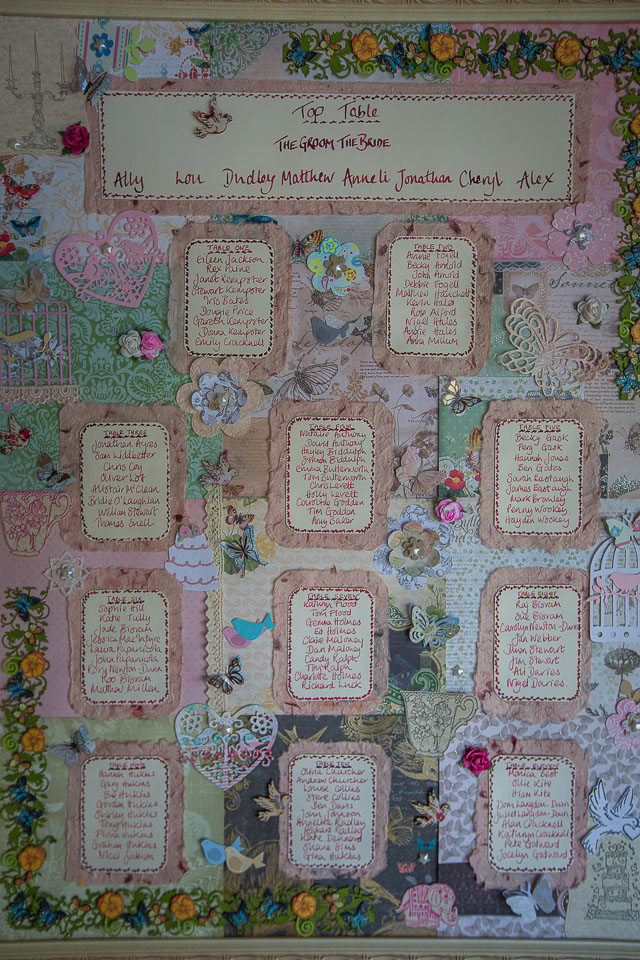 Top Table
THE GROOM THE BRIDE
Ally Lou Dudley Matthew Anneli Jonathan Cheryl Alex
TABLE ONE
Eileen Jackson
Rex Paine
Janet Kempster
Stewart Kempster
Iris Bates
Dougie Price
Gareth Kempster
Donna Kempster
Emily Cracknell
TABLE TWO
Annie Fogell
Becky Arnold
Josh Arnold
Debbie Fogell
Matthew Hanchett
Kevin Hales
Ros Alford
Nigel Hales
Angie Hales
Anna Millum
TABLE THREE
Jonathan Ayres
Sam Lidbetter
Chris Coy
Oliver Lot
Alistair McClean
Bridie O'Laughlan
William Stewart
Thomas Snell
TABLE FOUR
Natalie Anthony
David Anthony
Hayley Biddulph
Simon Biddulph
Emma Butterworth
Tom Butterworth
Chris Levett
Holly Levett
Caroline Godden
Tim Godden
Amy Baker
TABLE FIVE
Becky Gask
Ferg Gask
Hannah Jones
Ben Gates
Sarah Eastaugh
James Eastaugh
Mark Bromley
Penny Wookey
Hayden Wookey
Sonne
TABLE SIX
Sophie Hill
Katie Tully
Jade Bisram
Jessica MacIntyre
Laura Papanicola
John Papanicola
Rory Newton-Dunn
Rob Bisram
Matthew Millen
TABLE SEVEN
Kathryn Flood
Tom Flood
Gemma Holmes
Ed Holmes
Claire Maloney
Dan Maloney
Candy Ralph
Tim Ralph
Charlotte Holmes
Richard Luck
TABLE EIGHT
Raj Bisram
Sue Bisram
Carolyn Newton-Dunn
Jan Webber
Jinn Stewart
Jim Stewart
Ali Davies
Nigel Davies
TABLE NINE
Hannah Hukins
Gary Hukins
Sue Hukins
Gordon Hukins
Shirley Hukins
Tony Hukins
Flora Hukins
Graham Hukins
Nicci Jackson
TABLE TEN
Olivia Churcher
Andrew Churcher
Louise Collins
Steve Collins
Jen Davis
John Johnson
Angelita Radley
Richard Radley
Kate Dennard
Shane Sims
Gina Hukins
TABLE ELEVEN
Monica Best
Ollie Kite
Hian Kite
Dom Langdon-Down
Juliet Langdon-Down
Peter Cracknell
Kathryn Cracknell
Pete Gotward
Jocelyn Gotward